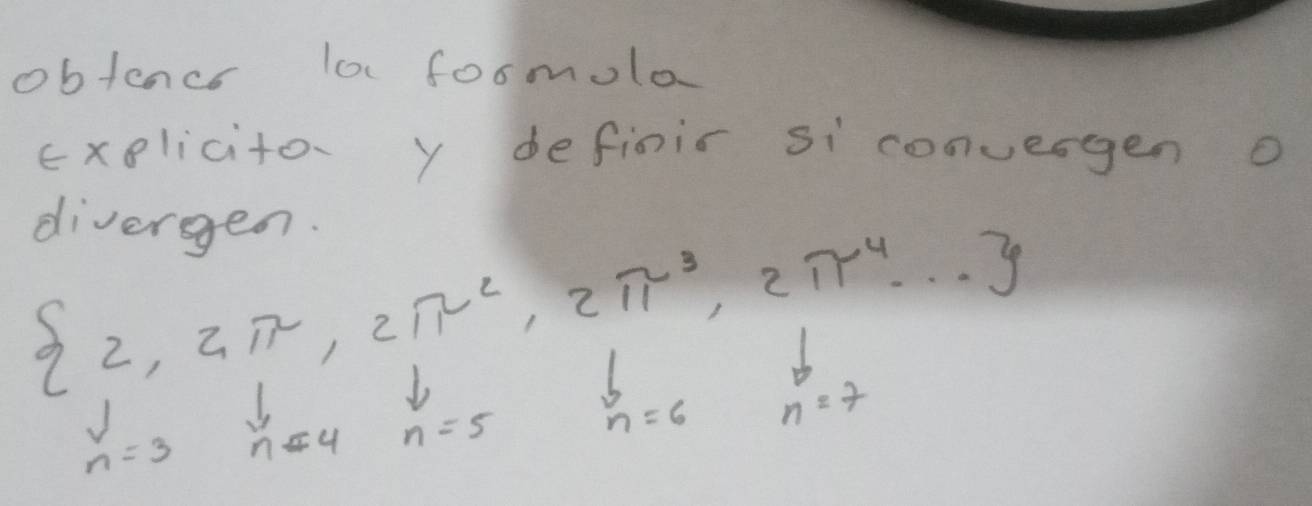 obtener la formula
Explicita y definir si convergen o
divergen.
{ 2, 2π, 2π², 2π³, 2π⁴... }
↓ n=3 ↓ n=4 ↓ n=5 ↓ n=6 ↓ n=7